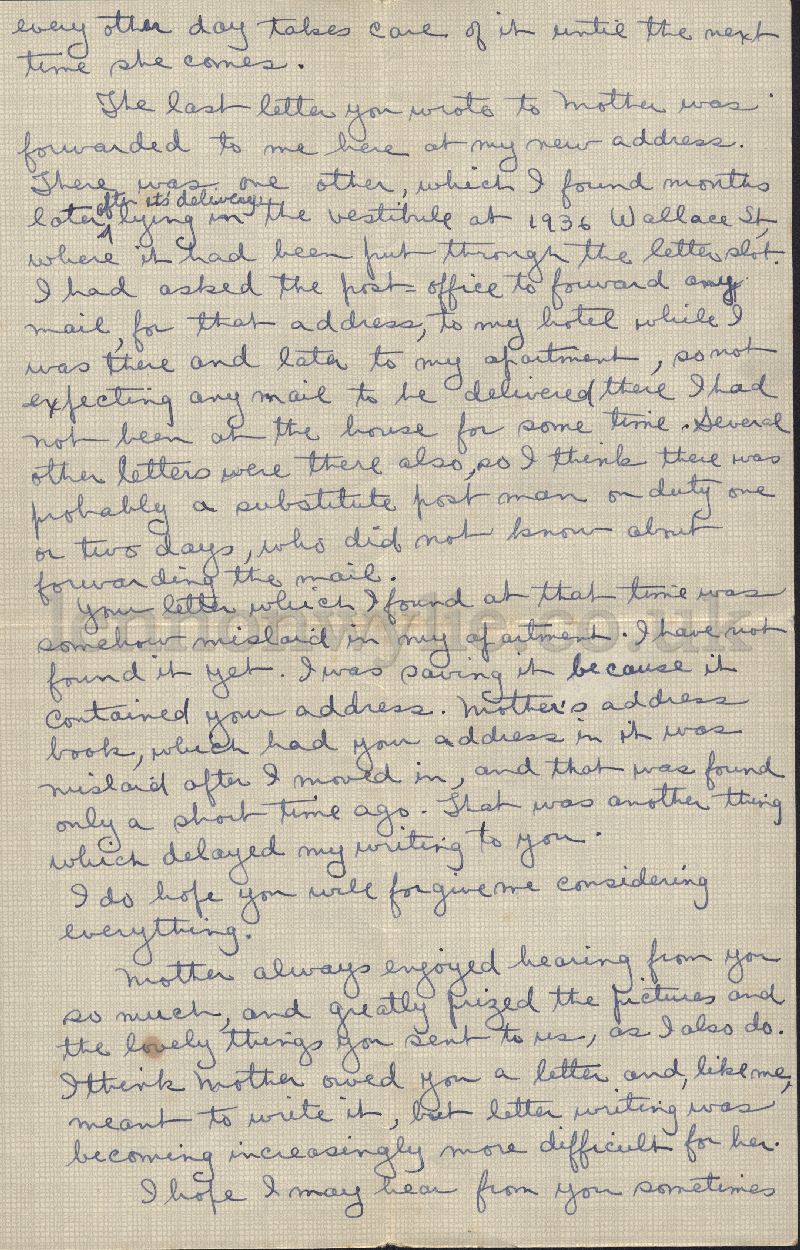 every other day takes care of it until the next
time she comes.
The last letter you wrote to Mother was
forwarded to me here at my new address.
There was one other, which I found months
after its delivery
later lying in the vestibule at 1936 Wallace St,
where it had been put through the letter slot.
I had asked the post-office to forward any
mail, for that address, to my hotel while I
was there and later to my apartment, so not
expecting any mail to be delivered there I had
not been at the house for some time. Several
other letters were there also, so I think there was
probably a substitute post man on duty one
or two days, who did not know about
forwarding the mail.
Your letter which I found at that time was
somehow mislaid in my apartment. I have not
found it yet. I was saving it because it
contained your address. Mother's address
book, which had your address in it was
mislaid after I moved in, and that was found
only a short time ago. That was another thing
which delayed my writing to you.
I do hope you will forgive me considering
everything.
Mother always enjoyed hearing from you
so much, and greatly prized the pictures and
the lovely things you sent to us, as I also do.
I think Mother owed you a letter and, like me,
meant to write it, but letter writing was
becoming increasingly more difficult for her.
I hope I may hear from you sometimes
lennonwylie.co.uk